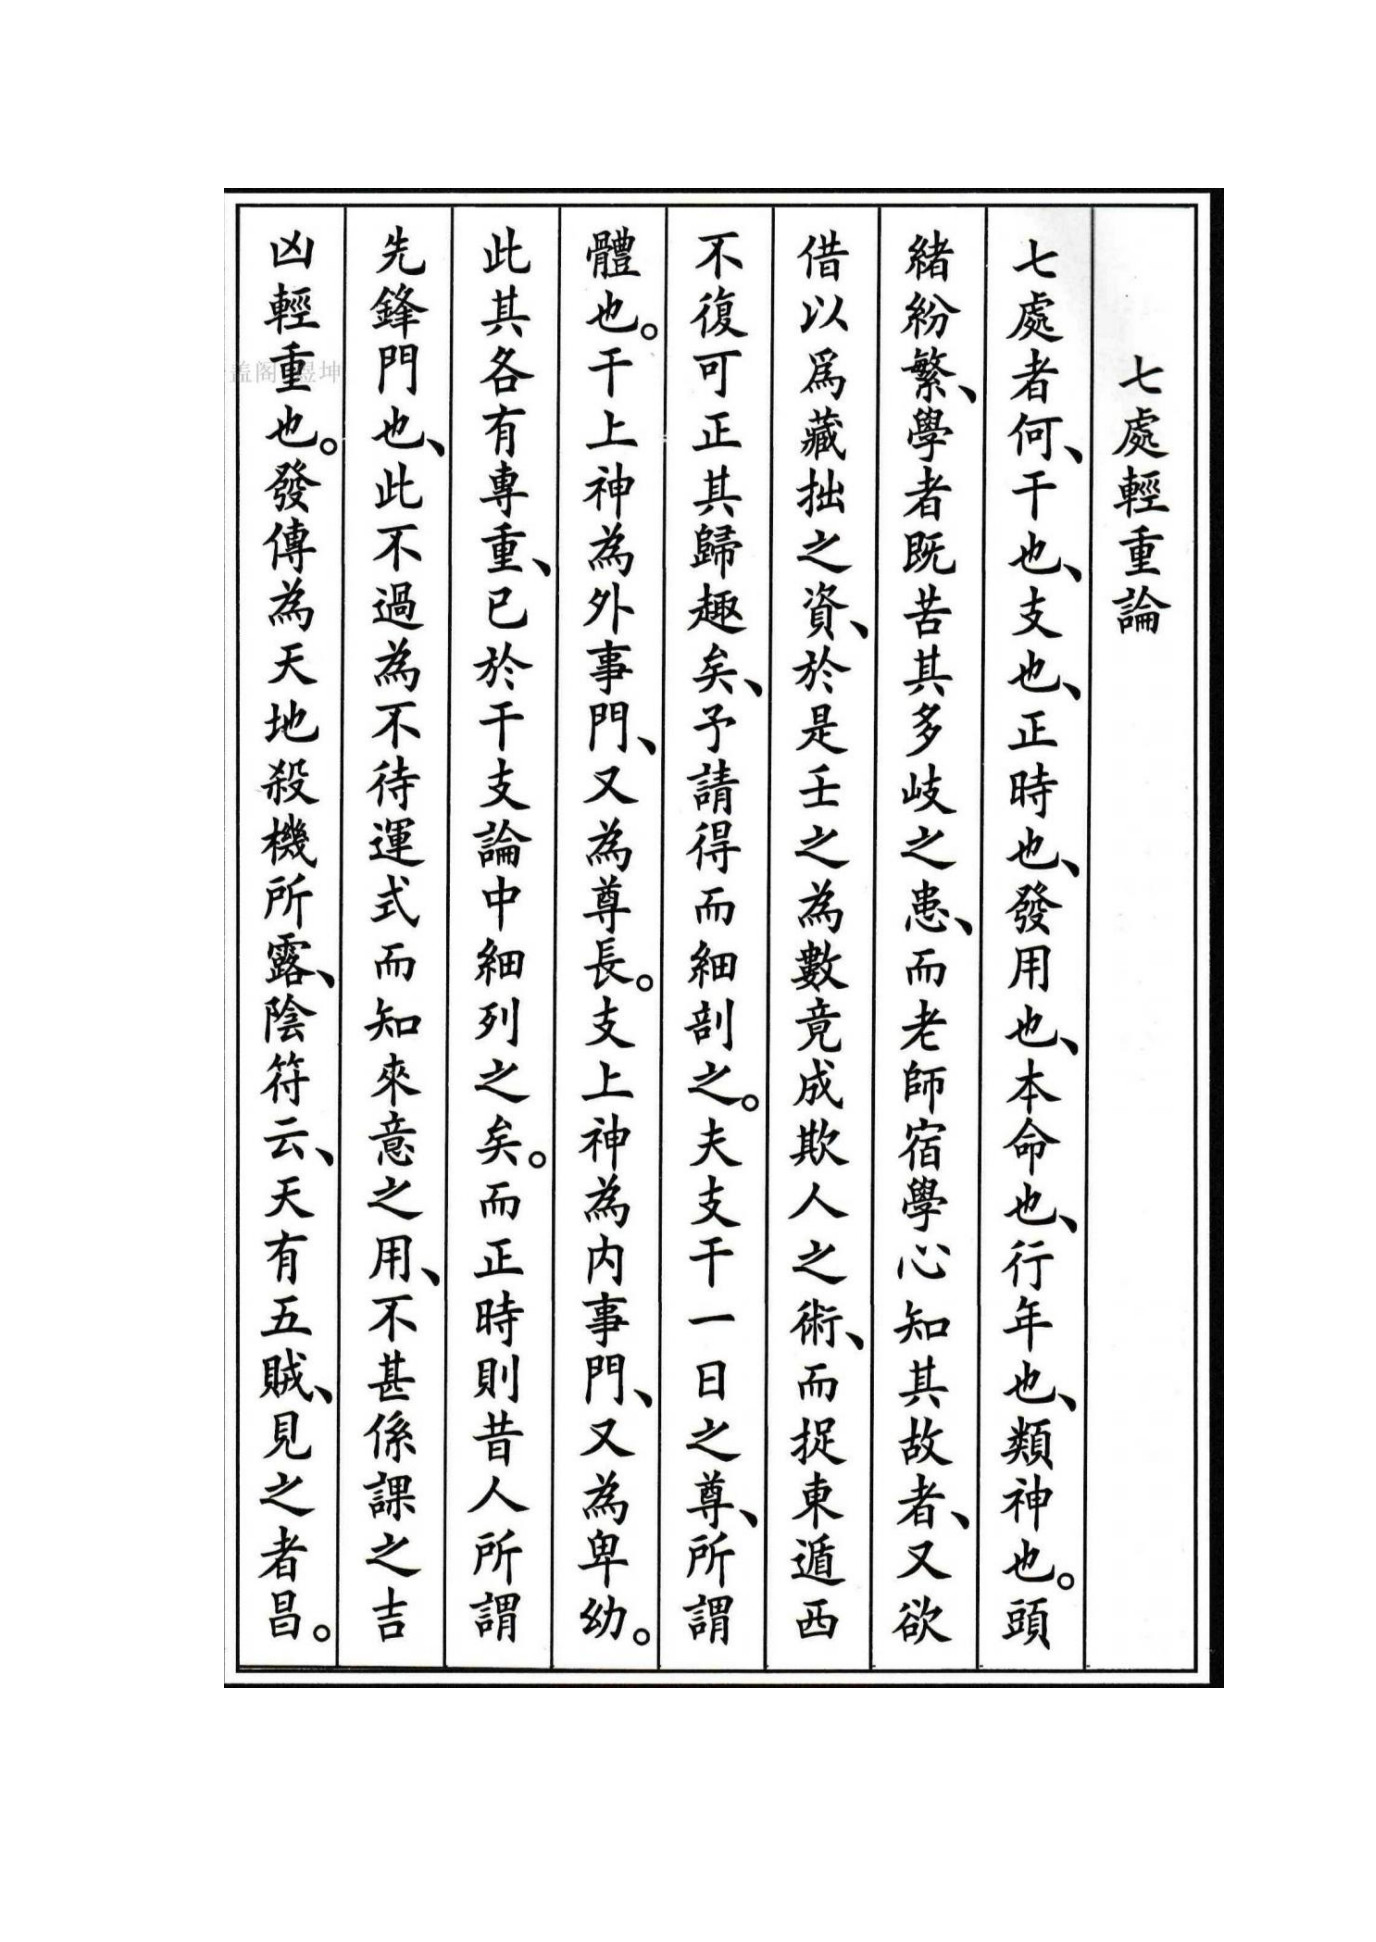 七處輕重論
七處者何、干也、支也、正時也、發用也、本命也、行年也、類神也。頭
緒紛繁、學者既苦其多歧之患、而老師宿學心知其故者、又欲
借以爲藏拙之資、於是壬之為數竟成欺人之術、而捉東遁西
不復可正其歸趣矣、予請得而細剖之。夫支干一日之尊、所謂
體也。干上神為外事門、又為尊長。支上神為内事門、又為卑幼。
此其各有專重、已於干支論中細列之矣。而正時則昔人所謂
先鋒門也、此不過為不待運式而知來意之用、不甚係課之吉
凶輕重也。發傳為天地殺機所露、陰符云、天有五賊、見之者昌。